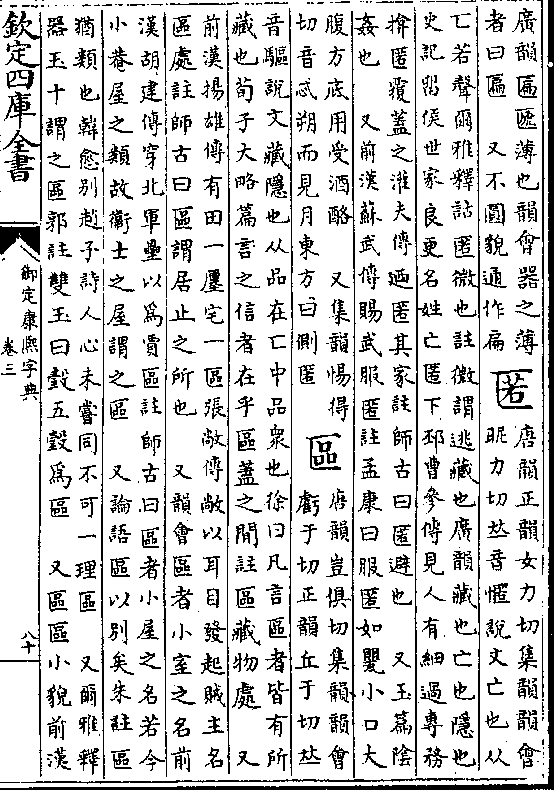 廣韻匾匜薄也韻會器之薄
者曰匾 又不圓貌通作扁
匿
唐韻正韻女力切集韻韻會
昵力切𠀤音惄說文亡也从
匸若聲爾雅釋詁匿微也註微謂逃藏也廣韻藏也亡也隱也
史記留侯世家良更名姓亡匿下邳曹參傳見人有細過專務
揜匿覆蓋之淮夫傳迺匿其家註師古曰匿避也 又玉篇陰
姦也 又前漢蘇武傳賜武服匿註孟康曰服匿如甖小口大
腹方底用受酒酪 又集韻惕得
切音忒朔而見月東方曰側匿
區
唐韻豈俱切集韻韻會
虧于切正韻丘于切𠀤
音驅說文藏隱也从品在匸中品衆也徐曰凡言區者皆有所
藏也荀子大略篇言之信者在乎區蓋之閒註區藏物處 又
前漢揚雄傳有田一廛宅一區張敞傳敞以耳目發起賊主名
區處註師古曰區謂居止之所也 又韻會區者小室之名前
漢胡建傳穿北軍壘以爲賈區註師古曰區者小屋之名若今
小菴屋之類故衞士之屋謂之區 又論語區以別矣朱註區
猶類也韓愈別趙子詩人心未嘗同不可一理區 又爾雅釋
器玉十謂之區郭註雙玉曰瑴五瑴爲區 又區區小貌前漢
欽定四庫全書
御定康熙字典
卷三
八十